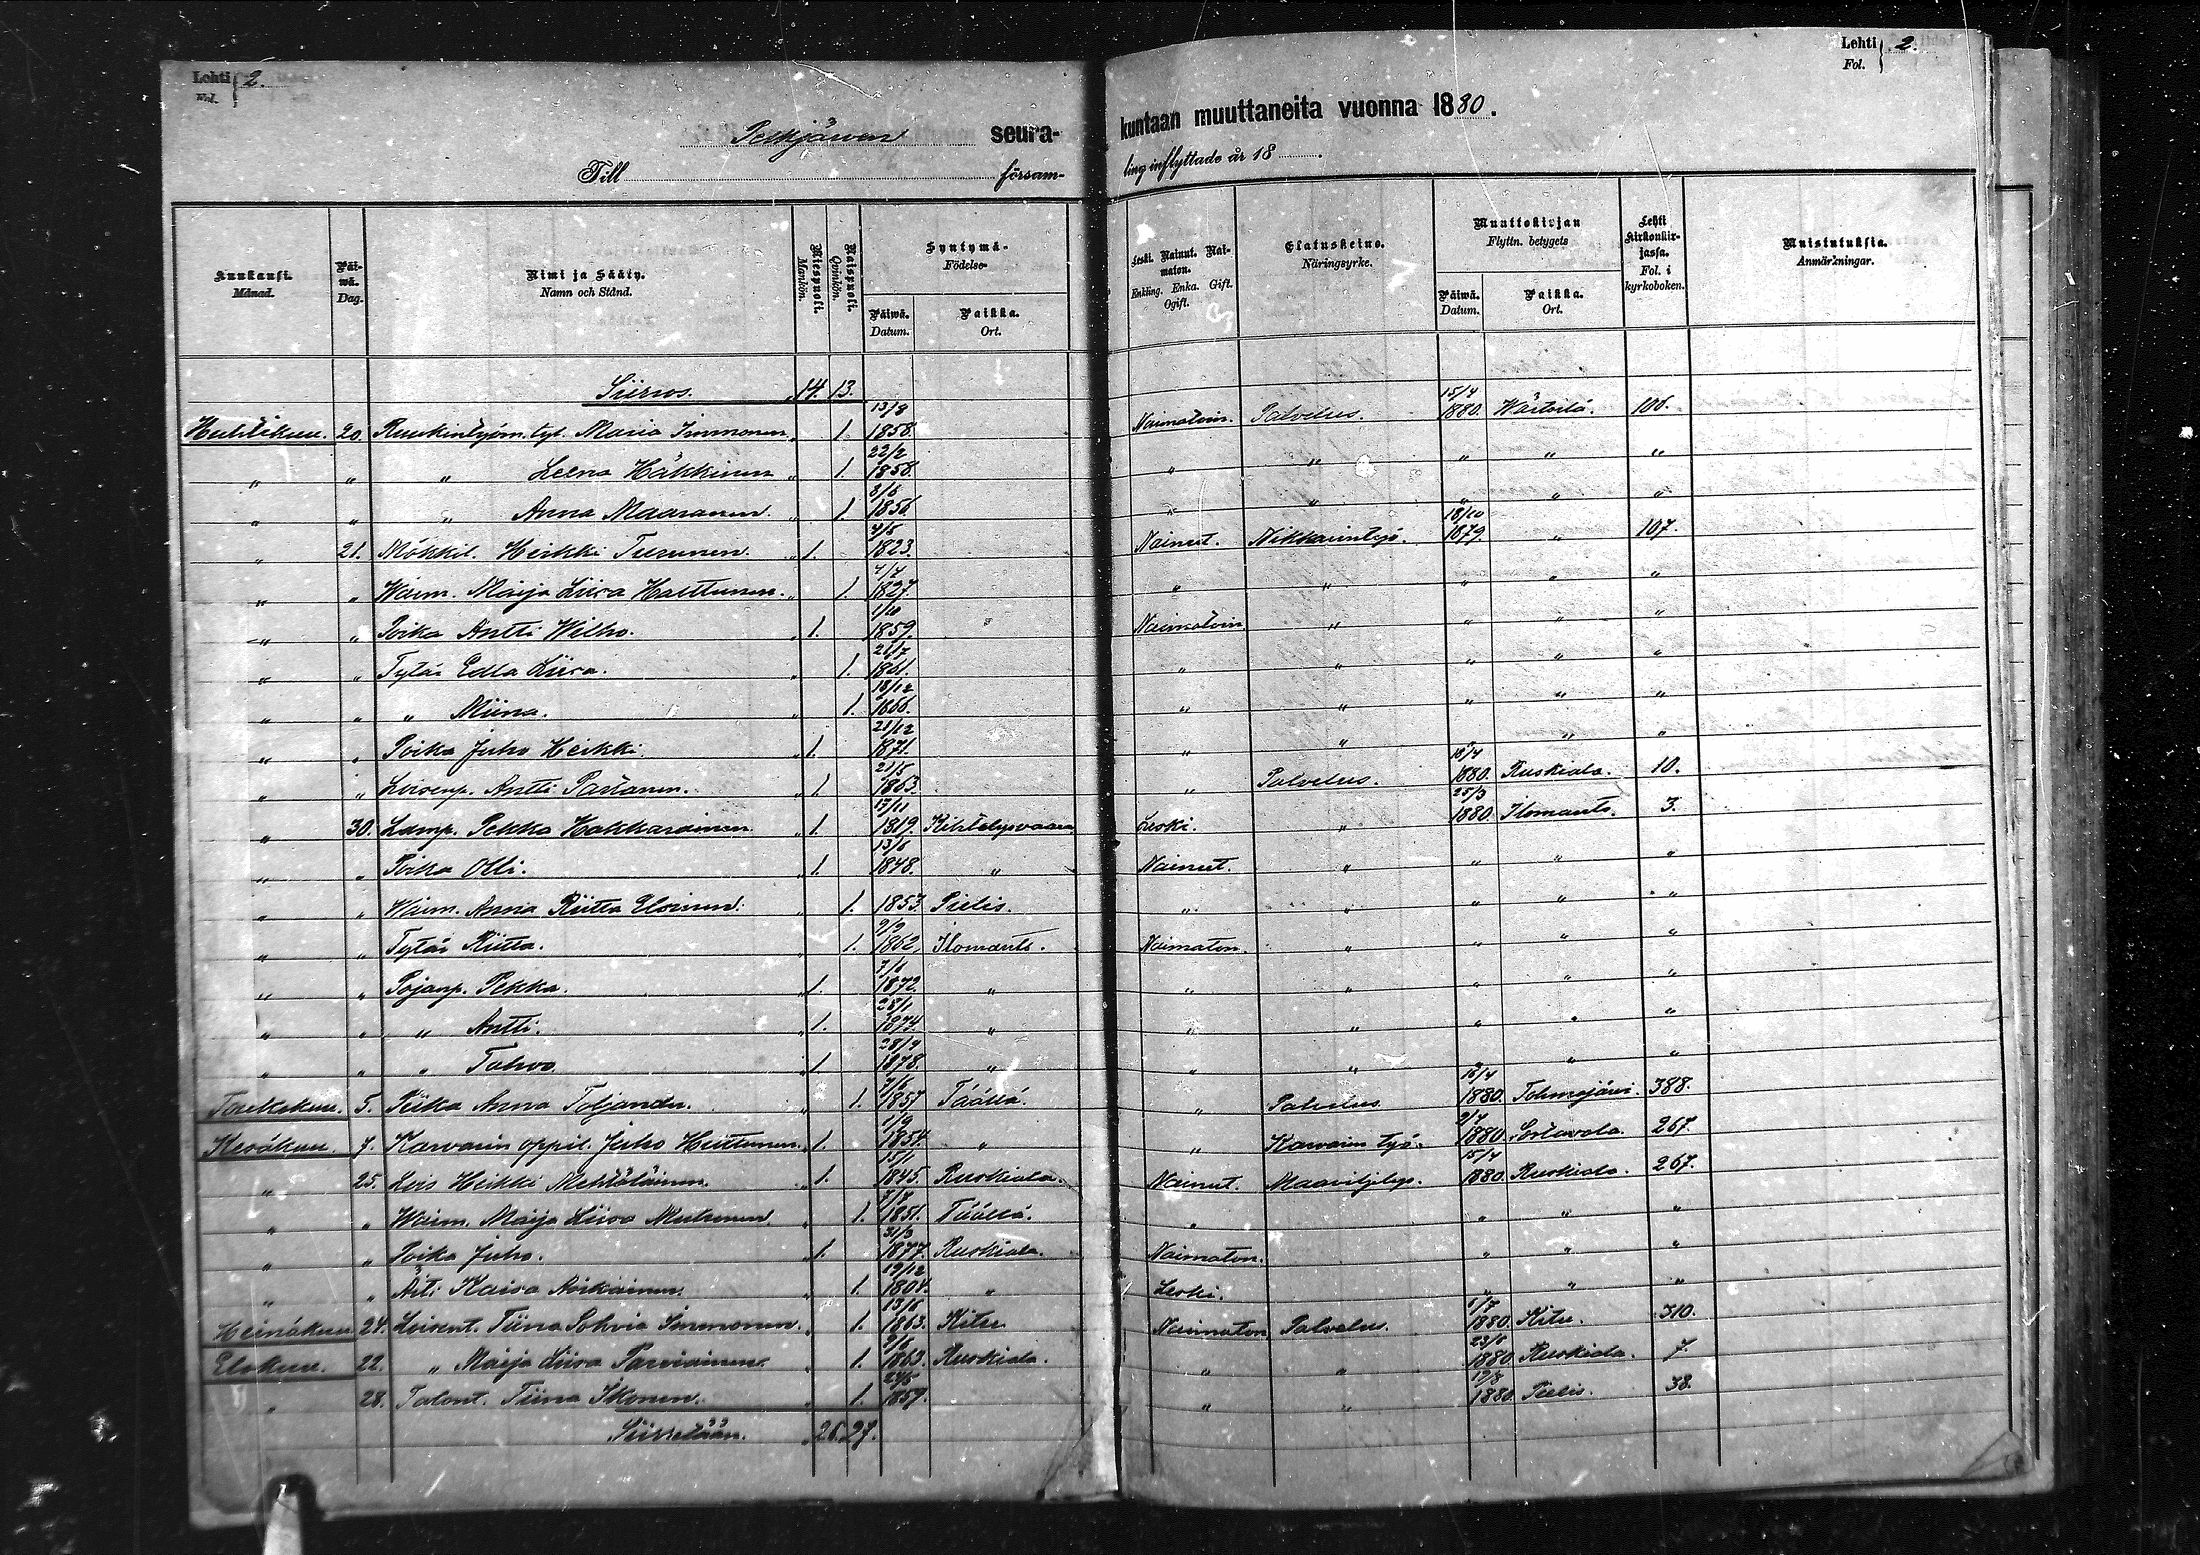 Lehti 2.
Fol.
Lehti 2.
Fol.
Pelkjärven seura-
kuntaan muuttaneita vuonna 1880.
Till försam-
ling inflyttade år 18
Kuukausi. Månad.
Päiwä. Dag.
Nimi ja Sääty. Namn och Stånd.
Miespuoli. Mankön.
Naispuoli. Qvinkön.
Syntymä- Födelse-
Päiwä. Datum.
Paikka. Ort.
Leski. Nainut. Naimaton. Enkling. Enka. Gift. Ogift.
Elatuskeino. Näringsyrke.
Muuttokirjan Flyttn. betygets
Päiwä. Datum.
Paikka. Ort.
Lehti kirkonkirjassa. Fol. i kyrkoboken.
Muistutuksia. Anmärkningar.
Siirros. 14. 13.
Huhtikuu. 20. Ruukintyöm. tyt. Maria Immonen 1. 13/8 1858. Naimatoin. Palvelus. 15/4 1880. Wärtsilä. 106.
" " " Leena Häkkinen 1. 22/2 1858. " " " " "
" " " Anna Maaranen. 1. 8/6 1856 " " " " "
" 21. Mökkil. Heikki Turunen. 1. 4/5 1823. Nainut. Nikkarintyö. 18/10 1879. " 107.
" " Waim. Maija Liisa Halttunen. 1. 4/4 1827. " " " " "
" " Poika Antti Wilho. 1. 1/10 1859. Naimatoin " " " "
" " Tytär Edla Liisa. 1. 21/7 1861. " " " " "
" " " Miina. 1. 18/12 1866. " " " " "
" " Poika Juho Heikki. 1. 21/12 1871. " " " " "
" " Loisenp. Antti Partanen. 1. 21/5 1863. " Palvelus. 18/4 1880. Ruskiala. 10.
" 30. Lamp. Pekka Hakkarainen. 1. 17/11 1819. Kihtelysvaara Leski. " 25/3 1880. Ilomants. 3.
" " Poika Olli. 1. 13/6 1848. " Nainut. " " " "
" " Waim. Anna Riitta Elorinen. 1. 1853. Pielis. " " " " "
" " Tytär Riitta. 1. 9/9 1862. Ilomants. Naimaton. " " " "
" " Pojanp. Pekka. 1. 7/6 1872. " " " " " "
" " " Antti. 1. 28/1 1874. " " " " " "
" " " Tahvo. 1 28/9 1878. " " " " " "
Toukokuu. 5. Piika Anna Toljander. 1. 7/6 1857 Täällä. " Palvelus 18/4 1880. Tohmajärvi. 388.
Kesäkuu. 7. Karvarin oppil. Juho Huttunen. 1. 1/9 1854. " " Karvarin työ. 2/7 1880. Sortavala. 267.
" 25. Lois Heikki Mehtäläinen. 1. 15/1 1845. Ruskiala. Nainut. Maaviljelys. 15/4 1880. Ruskiala. 267.
" " Waim. Maija Liisa Muhonen. 1. 7/8 1851. Täällä. " " " "
" " Poika Juho. 1. 31/3 1877. Ruskiala. Naimaton. " " "
" " Äiti Kaisa Asikainen. 1. 19/12 1804. " Leski. " " "
Heinäkuu 24. Loisent. Tiina Sohvia Immonen. 1. 13/6 1863. Kitee Naimaton Palvelus. 1/7 1880. Kitee. 310.
Elokuu. 22. " Maija Liisa Parviainen. 1. 9/6 1863. Ruskiala. " " 23/6 1880. Ruskiala. 7.
" 28. Talont. Tiina Ikonen. 1. 24/5 1859. " " 19/8 1880. Pielis. 38.
Siirretään. 26. 27.